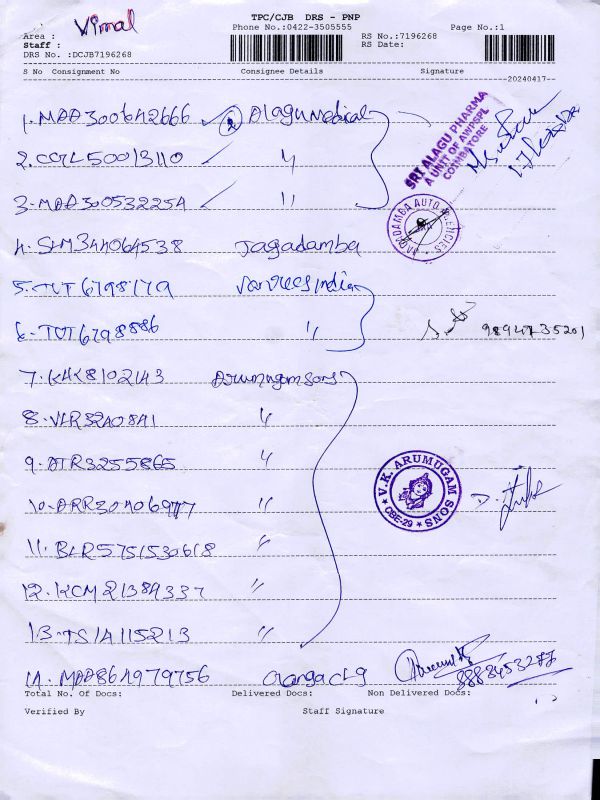 TPC/CJB DRS - PNP
Vimal
Phone No.:0422-3505555
Page No.:1
Area :
RS No.:7196268
Staff :
RS Date:
DRS No. :DCJB7196268
S No Consignment No Consignee Details Signature
20240417
1. MAA300642666 Alagu Medical
SRI ALAGU PHARMA
A UNIT OF AWDSPL
COIMBATORE
2. CGL50013110 "
3. MAA300532254 "
JAGADAMBA AUTO AGENCIES
4. SLM344064538 Jagadamba
5. TUT6798179
6. TUT6798886 " 9894735201
7. KHK8102143 Arumugam Sons
8. VLR3240841 "
9. ATR3255865 "
V.K. ARUMUGAM SONS
CBE-29
10. ARR30406977 "
11. BLR5751530618 "
12. KCM21384337 "
13. TSJA115213 "
14. MAA861979756 8883453277
Total No. Of Docs: Delivered Docs: Non Delivered Docs:
Verified By Staff Signature